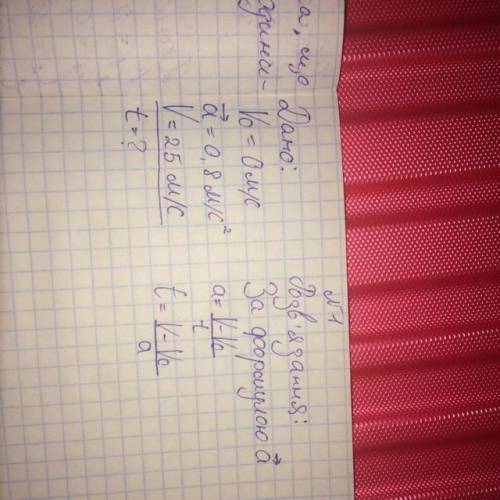 №1
а, що
Дано:
V₀ = 0 м/с
a⃗ = 0,8 м/с²
V = 25 м/с
t = ?
Розв'язання:
За формулою a⃗
a = V - V₀ / t
t = V - V₀ / a